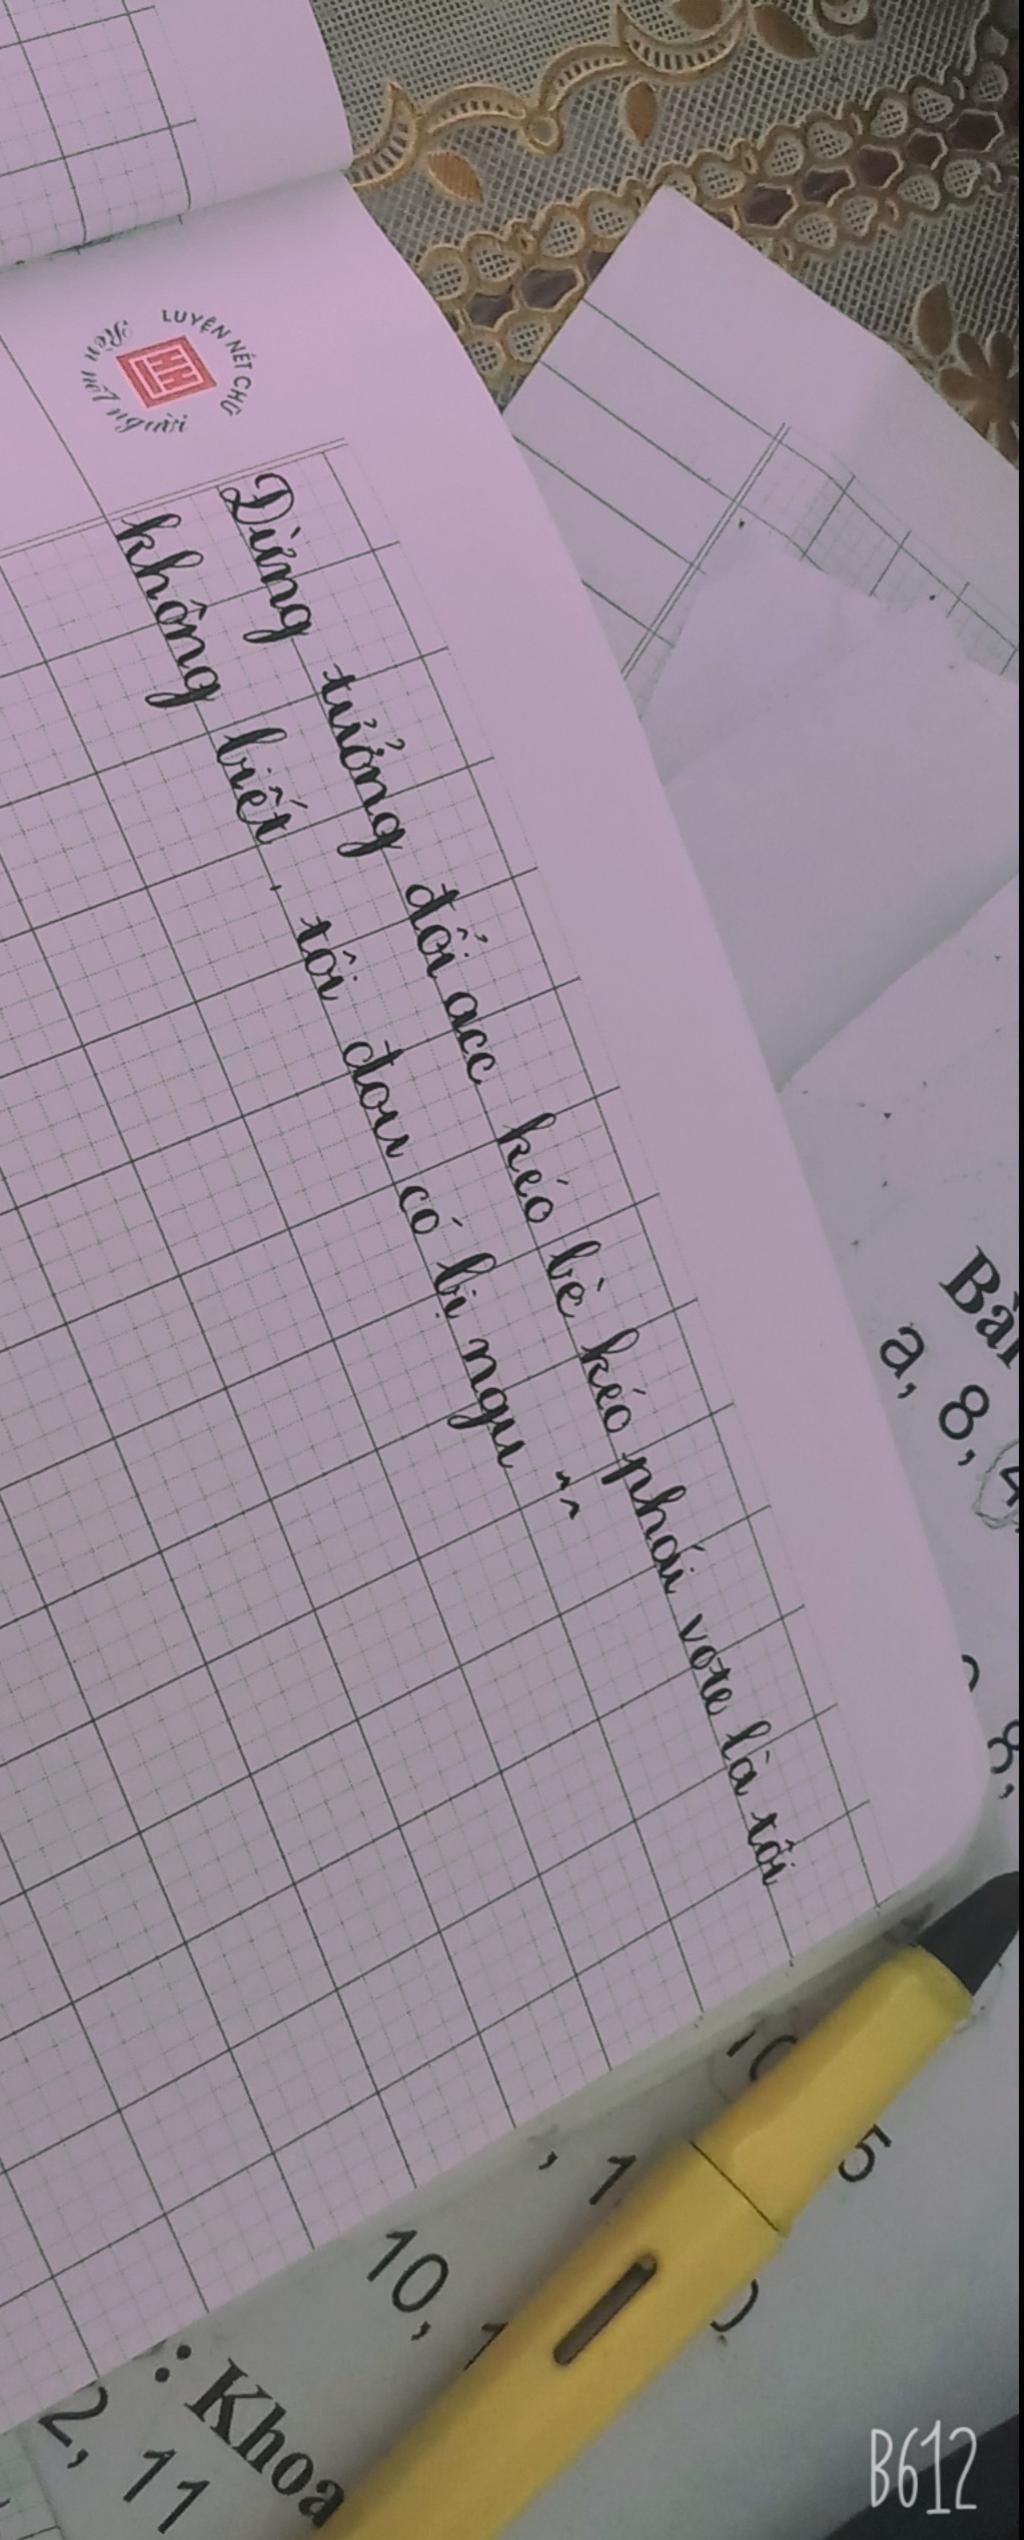 LUYỆN NÉT CHỮ
Rèn nết người
Đừng tưởng đổi acc kéo bè kéo phái vote là tôi
không biết, tôi đou có bị ngu ^^
Bài
a, 8, 4
8,
10
5
, 1
10, 1
: Khoa
2, 11
B612